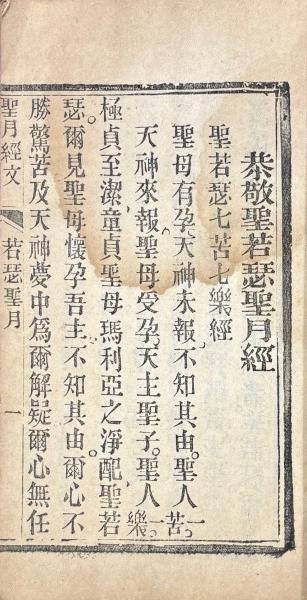 恭敬聖若瑟聖月經
聖若瑟七苦七樂經
聖母有孕、天神未報、不知其由。聖人一苦。
天神來報、聖母受孕、天主聖子。聖人一樂。
極貞至潔童貞聖母瑪利亞之淨配、聖若
瑟。爾見聖母懷孕吾主、不知其由、爾心不
勝驚苦及天神夢中為爾解疑爾心無任
聖月經文 若瑟聖月 一